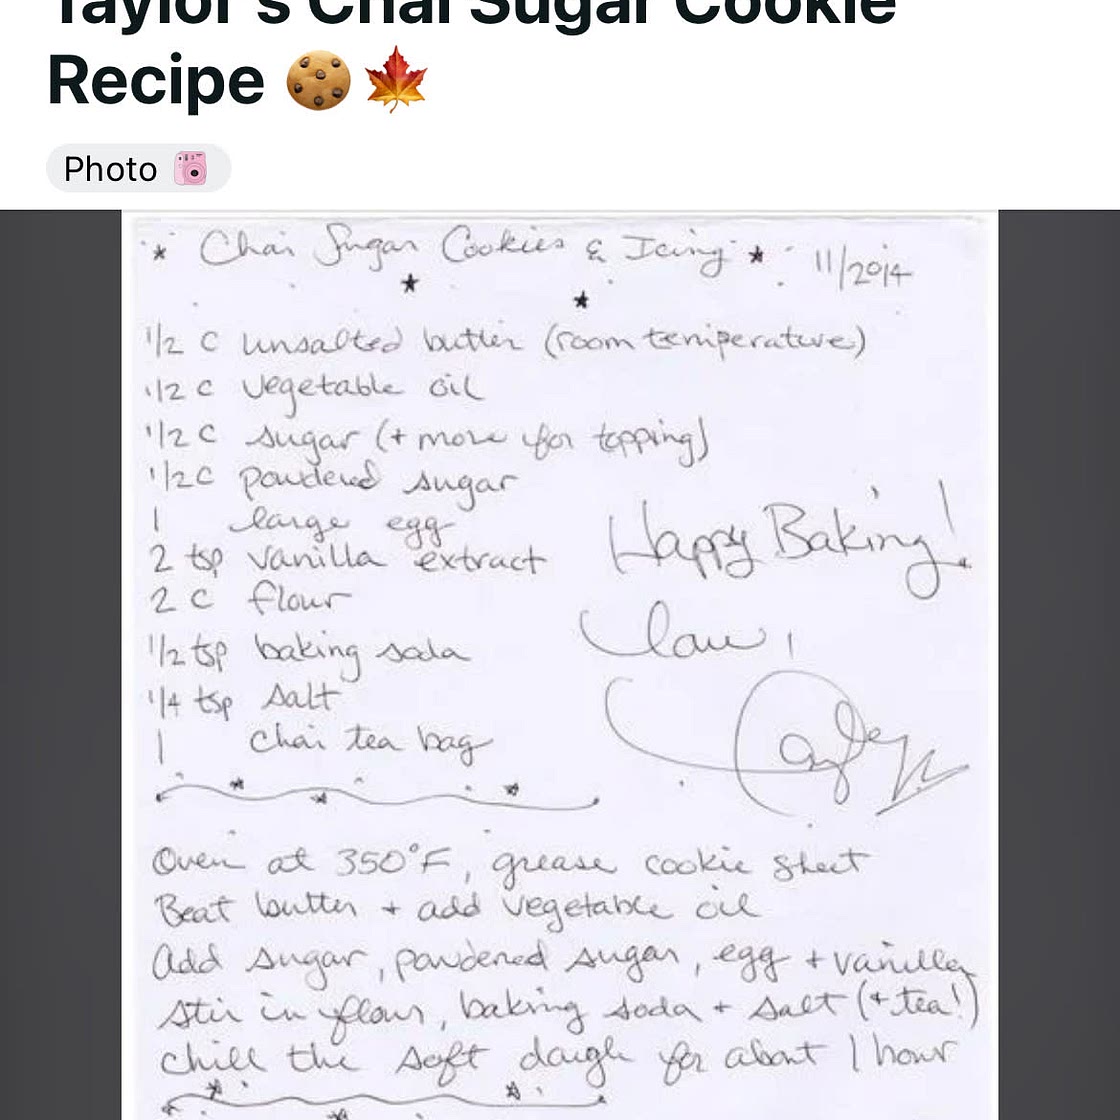 Taylor's Chai Sugar Cookie
Recipe
Photo
Chai Sugar Cookies & Icing 11/2014
1/2 c unsalted butter (room temperature)
1/2 c vegetable oil
1/2 c sugar (+ more for topping)
1/2 c powdered sugar
1 large egg
2 tsp vanilla extract
2 c flour
1/2 tsp baking soda
1/4 tsp salt
1 chai tea bag
Happy Baking!
Love,
Taylor
Oven at 350°F, grease cookie sheet
Beat butter + add vegetable oil
Add sugar, powdered sugar, egg + vanilla
Stir in flour, baking soda + salt (+ tea!)
Chill the soft dough for about 1 hour